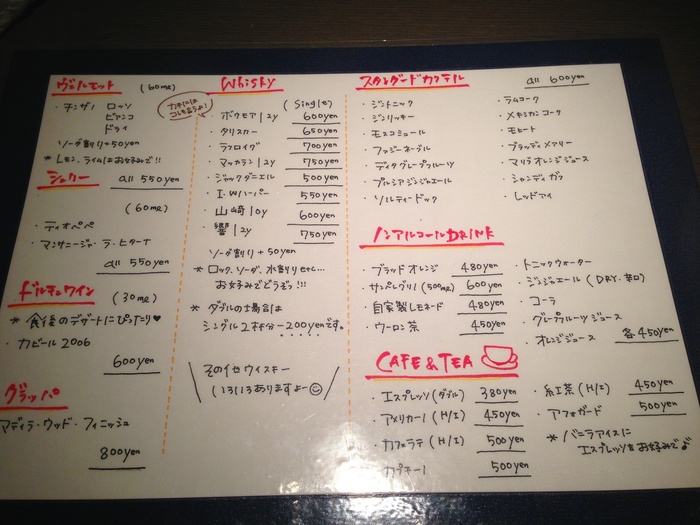 ヴェルモット (60mℓ)
・チンザノ ロッソ
ビアンコ
ドライ
ソーダ割り+50yen
* レモン、ライムはお好みで!!
シェリー all 550yen
(60mℓ)
・ティオペペ
・マンサニージャ・ラ・ヒターナ
all 550yen
ドルチェワイン (30mℓ)
* 食後のデザートにぴったり♥
・カビール2006
600yen
グラッパ
マディラ・ウッド・フィニッシュ
800yen
Whisky
コレを言うよ!
(Single)
・ボウモア12y 600yen
・タリスカー 650yen
・ラフロイグ 700yen
・マッカラン12y 750yen
・ジャックダニエル 500yen
・I.Wハーパー 550yen
・山崎10y 600yen
・響12y 750yen
ソーダ割り+50yen
* ロック、ソーダ、水割りetc...
お好みでどうぞ!!!
* ダブルの場合は
シングル2杯分-200yenです。
その他ウイスキー
いろいろありますよー☺
スタンダードカクテル all 600yen
・ジントニック
・ジンリッキー
・モスコミュール
・ファジーネーブル
・ディタグレープフルーツ
・プルシアジンジャエール
・ソルティードック
・ラムコーク
・メキシカンコーク
・モヒート
・ブラッディメアリー
・マリブオレンジジュース
・シャンディガフ
・レッドアイ
ノンアルコールDRINK
・ブラッドオレンジ 480yen
・サンペレグリノ(500mℓ) 600yen
・自家製レモネード 480yen
・ウーロン茶 450yen
・トニックウォーター
・ジンジャエール (DRY・辛口)
・コーラ
・グレープフルーツジュース
・オレンジジュース 各450yen
CAFE & TEA
・エスプレッソ(ダブル) 380yen
・アメリカーノ(H/I) 450yen
・カフェラテ(H/I) 500yen
カプチーノ 500yen
・紅茶(H/I) 450yen
・アフォガード 500yen
* バニラアイスに
エスプレッソをお好みで♪